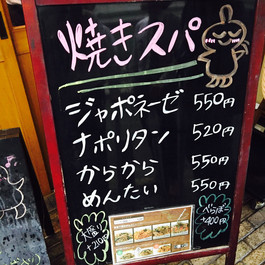 焼きスパ
ジャポネーゼ 550円
ナポリタン 520円
からから 550円
めんたい 550円
大盛り
+210円
べらぼー
+400円